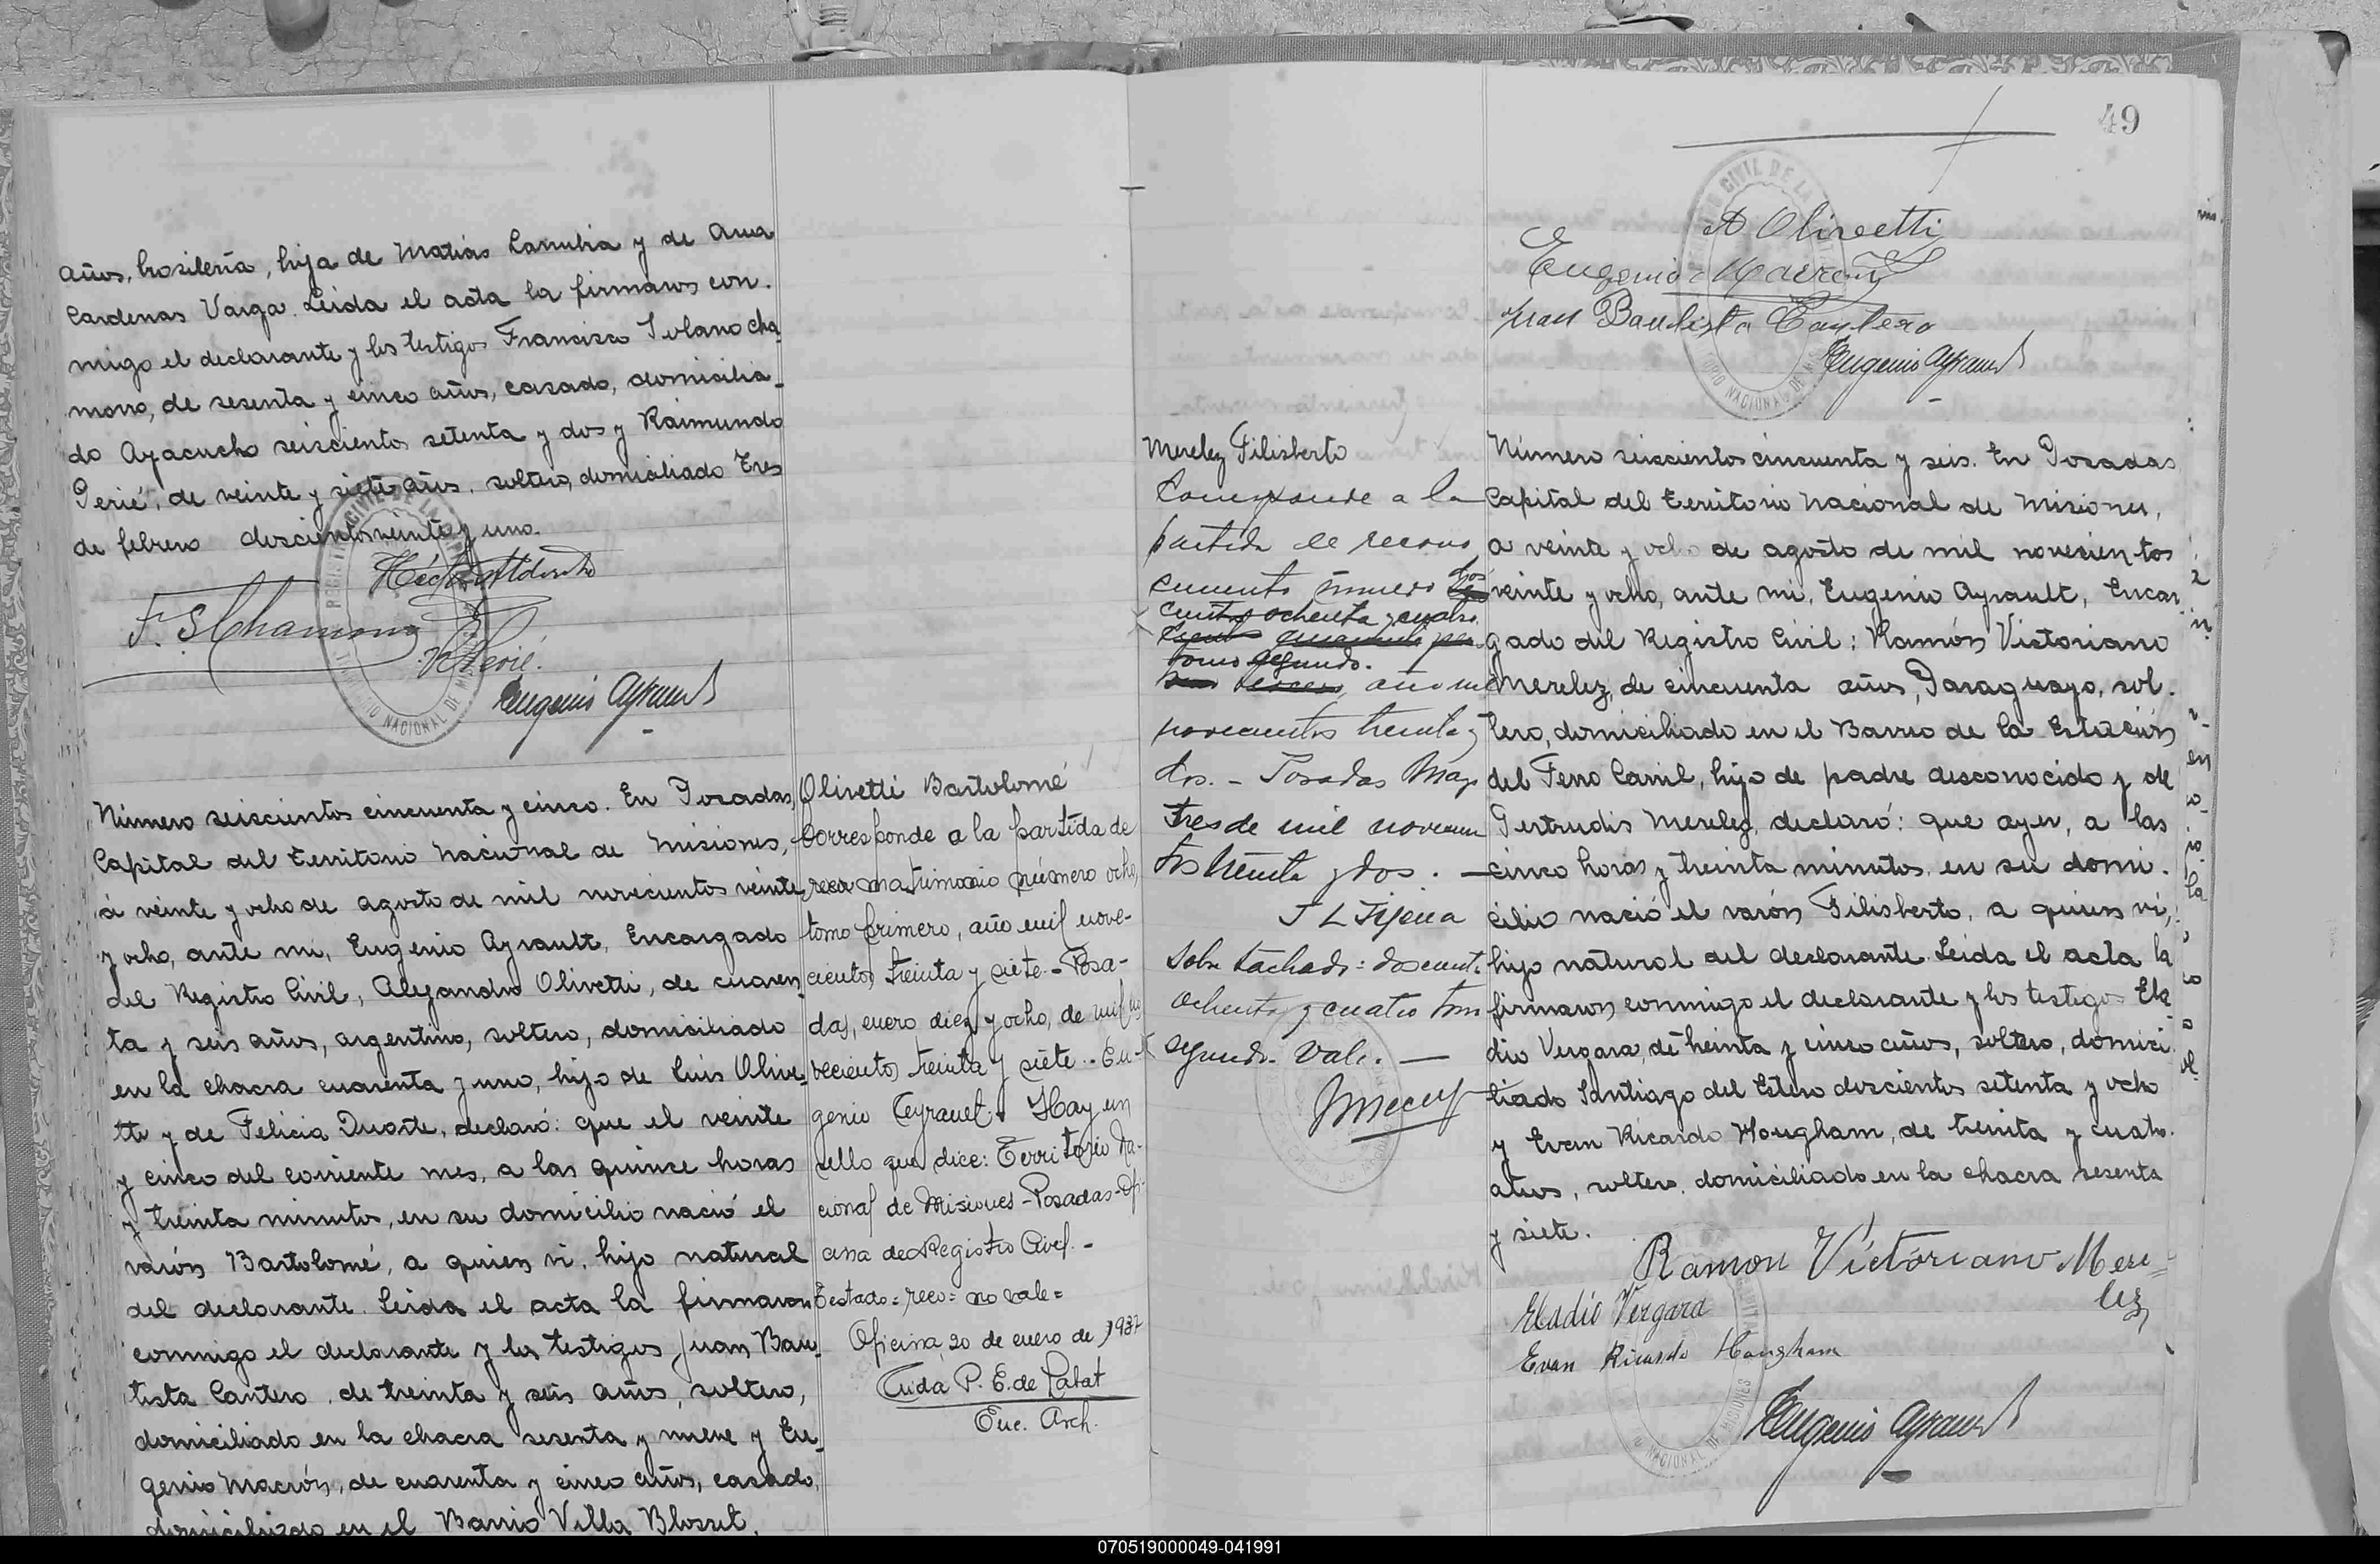 años, brasileña, hija de Matías Carrubia y de Ana
Cardenas Varga. Leida el acta la firmaron con-
migo el declarante y los testigos Francisco Solano cha-
morro, de sesenta y cinco años, casado, domicilia-
do Ayacucho seiscientos setenta y dos y Raimundo
Perié, de veinte y siete años, soltero, domiciliado Tres
de febrero doscientos veinte y uno.
F. S. Chamorro
R Perié.
Eugenio Ayrault
Número seiscientos cincuenta y cinco. En Posadas,
Capital del Territorio Nacional de Misiones,
á veinte y ocho de agosto de mil novecientos veinte
y ocho, ante mi, Eugenio Ayrault, Encargado
del Registro Civil, Alejandro Olivetti, de cuaren-
ta y seis años, argentino, soltero, domiciliado
en la chacra cuarenta y uno, hijo de Luis Olive-
tti y de Felicia Duarte, declaró: que el veinte
y cinco del corriente mes, a las quince horas
y treinta minutos, en su domicilio nació el
varón Bartolomé, a quien vi, hijo natural
del declarante. Leida el acta la firmaron
conmigo el declarante y los testigos Juan Bau-
tista Cantero, de treinta y seis años, soltero,
domiciliado en la chacra sesenta y nueve y Eu-
genio Macrón, de cuarenta y cinco años, casado,
domiciliado en el Barrio Villa Blosset.
Olivetti Bartolomé
Corresponde a la partida de
reco matrimonio número ocho,
tomo primero, año mil nove-
cientos treinta y siete.- Posa-
das, enero diez y ocho, de mil no-
vecientos treinta y siete.- Eu-
genio Ayrault. Hay un
sello que dice: Territorio Na-
cional de Misiones - Posadas - Ofi-
cina de Registro Civil.-
Testado = reco = no vale =
Oficina, 20 de enero de 1937
P. E. de Labat
Enc. Arch.
49
A Olivetti
Eugenio Macrón
Juan Bautista Cantero
Eugenio Ayrault
Merelez Filisberto
Corresponde a la
partida de recono
cimiento número dos
cientos ochenta y cuatro
tomo segundo.
año mil
novecientos treinta y
dos. - Posadas Mayo
tres de mil novecien
tos treinta y dos. —
J L Tijena
Sobre tachado: doscientos
ochenta y cuatro tomo
segundo. Vale. —
Número seiscientos cincuenta y seis. En Posadas,
Capital del Territorio Nacional de Misiones,
a veinte y ocho de agosto de mil novecientos
veinte y ocho, ante mi, Eugenio Ayrault, Encar
gado del Registro Civil: Ramón Victoriano
Merelez, de cincuenta años, Paraguayo, sol-
tero, domiciliado en el Barrio de la Estación
del Ferro Carril, hijo de padre desconocido y de
Gertrudis Merelez, declaró: que ayer, a las
cinco horas y treinta minutos, en su domi-
cilio nació el varón Filisberto, a quien vi,
hijo natural del declarante. Leida el acta la
firmaron conmigo el declarante y los testigos Ela-
dio Vergara, de treinta y cinco años, soltero, domici
liado Santiago del Estero doscientos setenta y ocho
y Evan Ricardo Hougham, de treinta y cuatro
años, soltero, domiciliado en la chacra sesenta
y siete.
Ramon Victoriano Mere=
lez
Eladio Vergara
Evan Ricardo Hougham
Eugenio Ayrault
070519000049-041991